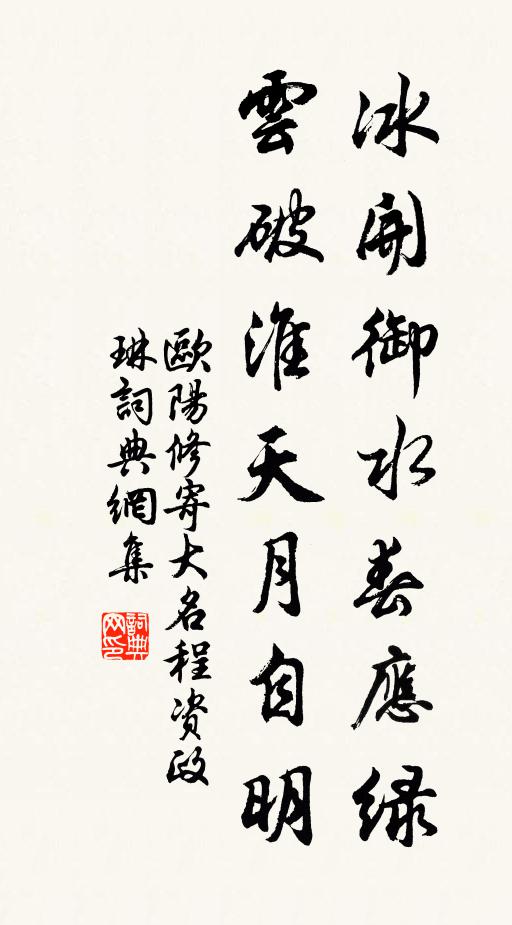 冰開御水春應綠
雲破淮天月自明
歐陽修寄大名程資政
琳詞典網集
詞典
网印